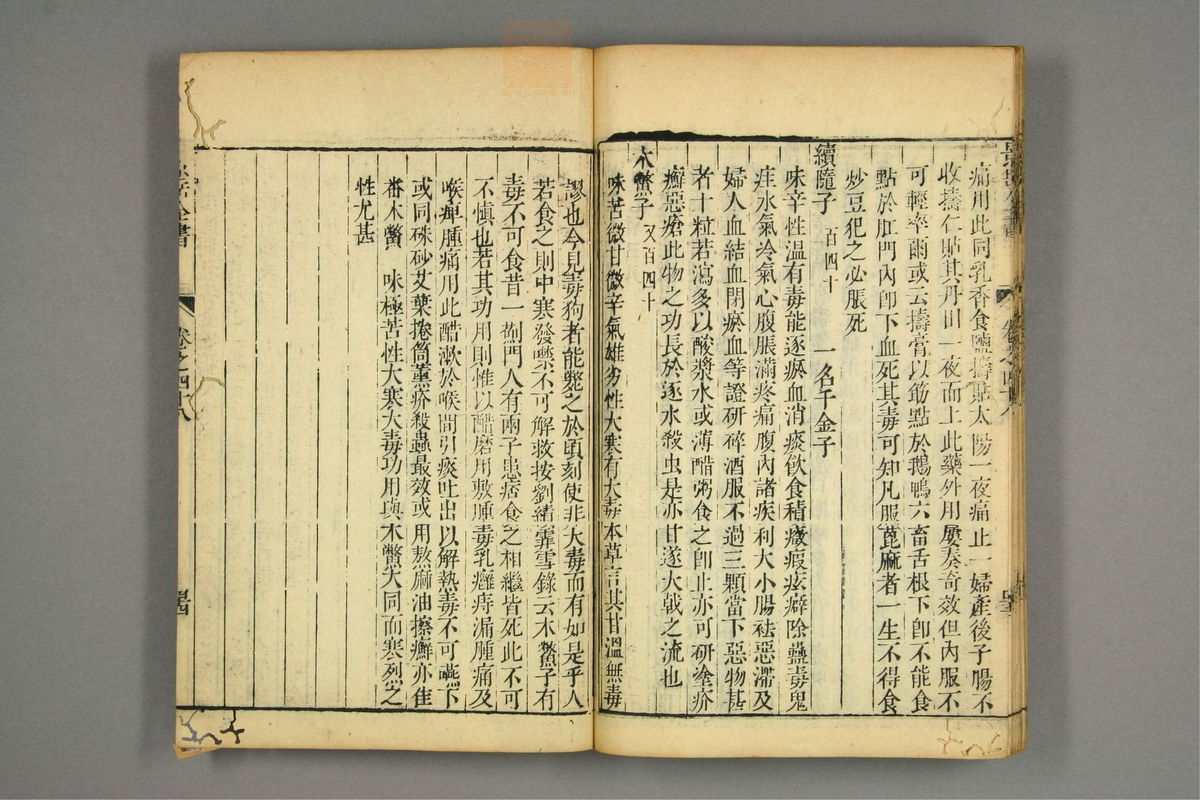 痛用此同乳香食鹽擣貼太陽一夜痛止一婦產後子腸不
收擣仁貼其丹田一夜而上此藥外用屢奏奇效但內服不
可輕率爾或云擣膏以筯點於鵝鴨六畜舌根下卽不能食
點於肛門內卽下血死其毒可知凡服蓖麻者一生不得食
炒豆犯之必脹死
續隨子 百四十 一名千金子
味辛性溫有毒能逐瘀血消痰飲食積癥瘕痃癖除蠱毒鬼
疰水氣冷氣心腹脹滿疼痛腹內諸疾利大小腸祛惡滯及
婦人血結血閉瘀血等證研碎酒服不過三顆當下惡物甚
者十粒若瀉多以酸漿水或薄醋粥食之卽止亦可研塗疥
癬惡瘡此物之功長於逐水殺虫是亦甘遂大戟之流也
木鱉子 又百四十
味苦微甘微辛氣雄劣性大寒有大毒本草言其甘溫無毒
謬也今見毒狗者能斃之於頃刻使非大毒而有如是乎人
若食之則中寒發噤不可解救按劉績霏雪錄云木鱉子有
毒不可食昔一薊門人有兩子患痞食之相繼皆死此不可
不慎也若其功用則惟以醋磨用敷腫毒乳癰痔漏腫痛及
喉痺腫痛用此醋漱於喉間引痰吐出以解熱毒不可嚥下
或同硃砂艾葉捲筒薰疥殺蟲最效或用熬麻油擦癬亦佳
番木鱉 味極苦性大寒大毒功用與木鱉大同而寒烈之
性尤甚
全書
卷之四十八